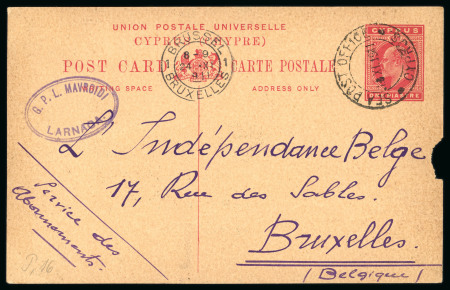 UNION POSTALE UNIVERSELLE
CYPRUS (CYPRE)
POST CARD CARTE POSTALE
WRITING SPACE ADDRESS ONLY
CYPRUS
ONE PIASTRE
SEA POST OFFICE
BRUSSEL
1 1
BRUXELLES
G. P. L. MAVROIDI
LARNACA
L'Indépendance Belge
17, Rue des Sables.
Bruxelles.
(Belgique)
Service des
Abonnements.